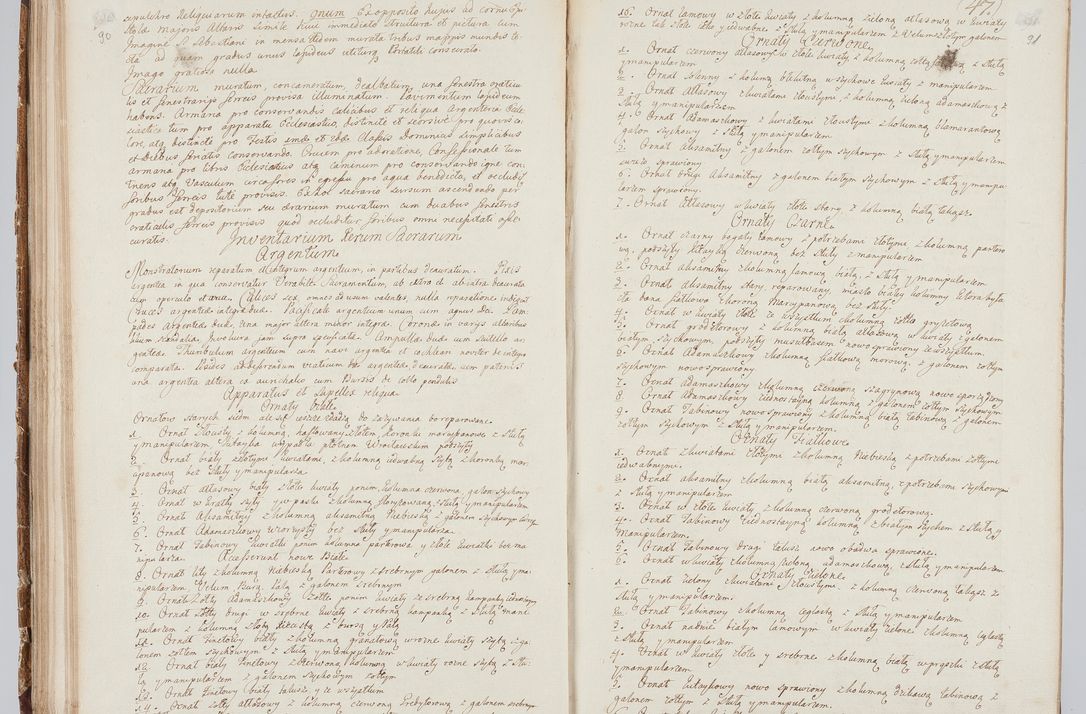 90
sepulchro Reliquiarum intactus. Ex opposito hujus ad cornu Epi
stolæ majoris Altaris simile
Imagine S. Sebastiani in mensa itidem murata tribus mappis mundis te-
cta ad quam gradus unus lapideus
Imago gratiosa nulla.
Sacrarium muratum, concameratum, dealbatum, una fenestra
lis et fenestrangis ferreis provisa illuminatum. Pavimentum lapideum
habens. Armaria pro conservandis calicibus et reliqua Argenteria Eccle
siastica tum pro apparatu Ecclesiastico, distincte et seorsive pro quovis co-
lore, atq distincte pro Festis
et Diebus ferialis conservando. Confessionale tum
armaria pro libris Ecclesiasticis atq caminum pro conservando igne con-
tinens atq Vasculum pro aqua benedicta, et occludit
foribus ferreis tute provisis. Ex hoc sacrario sursum ascendendo per
gradus est depositorium seu ærarium muratum cum duabus fenestris
craticulis ferreis provisis quod occluditur foribus omni necessitate
curatis.
Inventarium Rerum Sacrarum
Argentum
Monstratorium reparatum et integrum argenteum, in partibus deauratum. Pixis
argentea in qua conservatur Venerabile Sacramentum, ab extra et ab intra deaurata
cum operculo et cruce. Calices sex omnes ad usum valentes, nulla reparatione indigent
Cruces argenteæ integræ duæ. Pacificale argenteum unum cum agnus Dei. Lam-
pades Argenteæ duæ, una major altera minor integræ. Coronæ in varys altaribus
jam supra specificatæ. Ampullæ duæ cum scutello ar-
genteæ. Thuribulum argenteum cum navi argentea et cochleari noviter de integro
comparata. Pixides ad deferendum viaticum duæ argenteæ, deauratæ, cum patenis
una argentea altera ex aurichalco cum Bursis de collo pendulis
Apparatus et Supellex reliqua.
Ornaty białe.
Ornatow starych siedm ale się ieszcze zdadzą do zażywania bo reparowane.
1. Ornat tłusty z kolumną haftowaną złotem, koronki marcypanowe z stułą
y manipularzem kitayka wyspodu płotnem Wrocławskim podszyty
2. Ornat biały złotymi kwiatami, z kolumną iedwabną szytą z koronką mar-
cipanową bez stuły y manipularza.
3. Ornat atłasowy biały złote kwiaty ponim kolumna czerwona, galon szychowy
4. Ornat w kratki szyty y w paski z kolumną z stułą y manipularzem
5. Ornat Aksamitny z kolumną aksamitną Niebieską z galonem szychowym
6. Ornat Adamaszkowy wzorzysty bez stuły y manipularza.
7. Ornat Tabinowy kwiatki ponim kolumna parterowa y złote kwiatki bez ma-
nipularza. Accesserunt nowe Białe.
8. Ornat lity z kolumną Niebieską Parterowy z srebrnym galonem z stułą y ma-
nipularzem, Velum Bursą Pallą z galonem srebrnym
9. Ornat żółty Adamaszkowy żołte ponim kwiaty ze srebrną kampanką
10. Ornat żółty drugi w srebrne kwiaty z srebrną kampanką z stułą mani-
pularzem z kolumną złotą z bursą y Pallą
11. Ornat Knetowy biały z kolumną granatową w rozne kwiaty szytą z ga-
lonem żołtem szychowym z stułą y manipularzem
12. Ornat biały Knetowy z czerwoną kolumną w kwiaty rozne szytą z stu-
łą y manipularzem z galonem szychowym żołtym
13. Ornat Knetowy biały takisz, y ze wszystkim
14. Ornat żółty atłasowy z kolumną czerwoną Grodytorową z galonem srebrnym
(47)
91
16. Ornat lamowy w złote kwiaty z kolumną zieloną atłasową w kwiaty
rozne tak złote iako y iedwabne z stułą y manipularzem z Velum z złotym galonem
Ornaty Czerwone.
1. Ornat czerwony atłasowy w złote kwiaty z kolumną z stułą
y manipularzem
2. Ornat solenny z kolumną błękitną w szychowe kwiaty z manipularzem
3. Ornat Atłasowy z kwiatami tłoustymi z kolumną zieloną adamaszkową z
stułą y manipularzem
4. Ornat Adamaszkowy z kwiatami tłoustymi z kolumną Glamarantową
galon szychowy z stułą y manipularzem
5. Ornat Aksamitny z galonem żołtym szychowym z stułą y manipularzem
swieżo sprawiony
6. Ornat drugi Aksamitny z galonem białym szychowym z stułą y manipu-
larzem sprawiony.
7. Ornat Atłasowy w kwiaty złote stary z kolumną białą takąsz.
Ornaty Czarne.
1. Ornat czarny bogaty lamowy z potrzebami złotymi z kolumną pantero
wą, podszyty kitayką czerwoną bez stuły z manipularzem
2. Ornat aksamitny z kolumną lamową białą, z stułą y manipularzem
3. Ornat aksamitny stary, reparowany, miasto białey kolumny ktora była
tla dana fiałkowa z koroną Marcypanową bez stuły.
4. Ornat w kwiaty złote ze wszystkim kolumna żołta gryzetowa
5. Ornat grodetorowy z kolumną białą atłasową w kwiaty z galonem
białym szychowym, podszyty muselinem nowo sprawiony ze wszystkim
6. Ornat Adamaszkowy z kolumną fiałkową morową, z galonem żołtym
szychowym nowo sprawiony
7. Ornat adamaszkowy z kolumną czerwoną szagrynową nowo sporządzony
8. Ornat Adamaszkowy iednostayną kolumną z galonem żołtym szychowym
9. Ornat Tabinowy nowo sprawiony z kolumną białą tabinową z galonem
żołtym szychowym z stułą y manipularzem.
Ornaty Fiałkowe
1. Ornat z kwiatami złotymi z kolumną Niebieską z potrzebami żołtymi
iedwabnymi.
2. Ornat aksamitny z kolumną białą aksamitną, z potrzebami szychowymi
z stułą y manipularzem
3. Ornat w złote kwiaty z kolumną czerwoną grodetorową.
4. Ornat Tabinowy iednostayną kolumną z białym szychem z stułą y
Manipularzem.
5. Ornat Tabinowy drugi takisz nowo obadwa sprawione.
6. Ornat w kwiaty z kolumną zieloną, adamaszkową, z stułą y manipularzem
Ornaty Zielone.
1. Ornat zielony z kwiatami tłoustymi z kolumną czerwoną takąsz z
stułą y manipularzem.
2. Ornat Tabinowy z kolumną ceglastą z stułą y manipularzem
3. Ornat białym lamowym w kwiaty zielone z kolumną ceglastą
z stułą y manipularzem
4. Ornat w kwiaty złote y srebrne z kolumną białą w prązki z stułą
y manipularzem
5. Ornat kitaykowy nowo sprawiony z kolumną dzikawą tabinową z
galonem żołtym z stułą y manipularzem